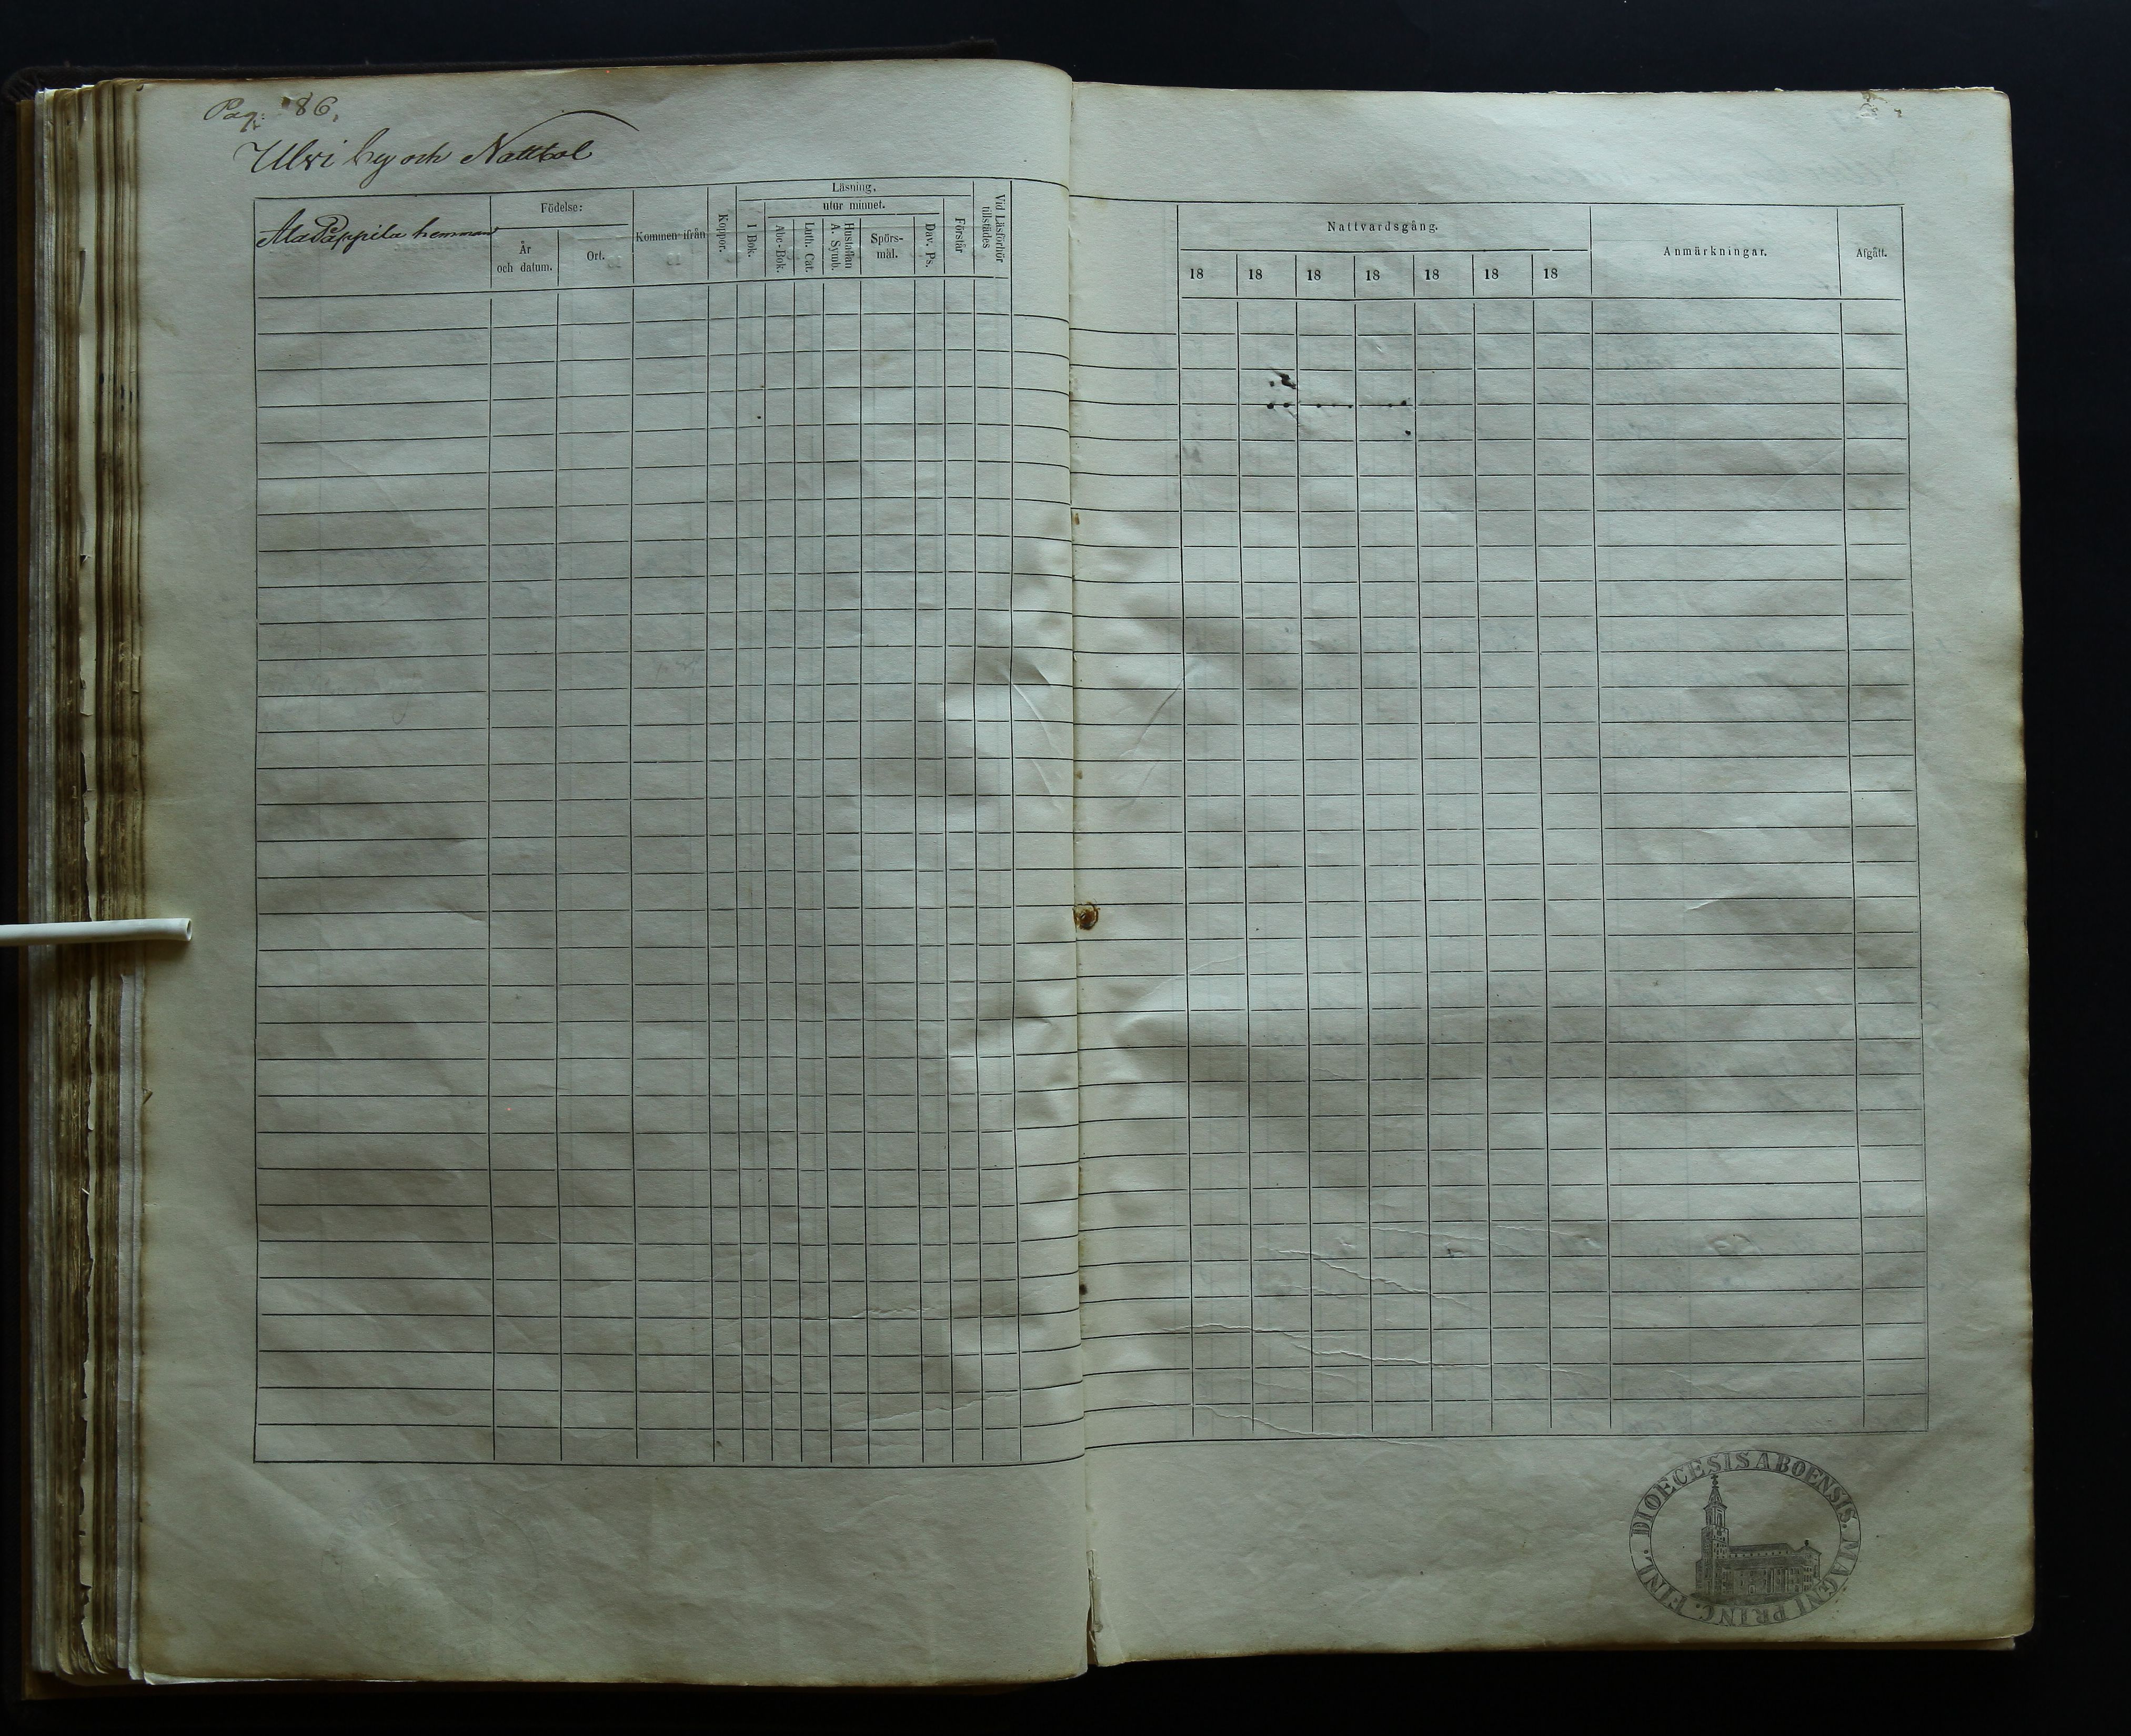 Pag. 86.
Ulvi by och Nattbol
Ala Pappila hemman
Födelse:
År
och datum.
Ort.
Kommen ifrån
Koppor.
Läsning.
I Bok.
utur minnet.
Abc-Bok.
Luth. Cat.
Hustaflan
A. Symb.
Spörs-
mål.
Dav. Ps.
Förstår
Vid Läsförhör
tillstädes
Nattvardsgång.
18 18 18 18 18 18 18
Anmärkningar.
Afgått.
DIOECESIS ABOENSIS. MAGNI PRINC. FINL.